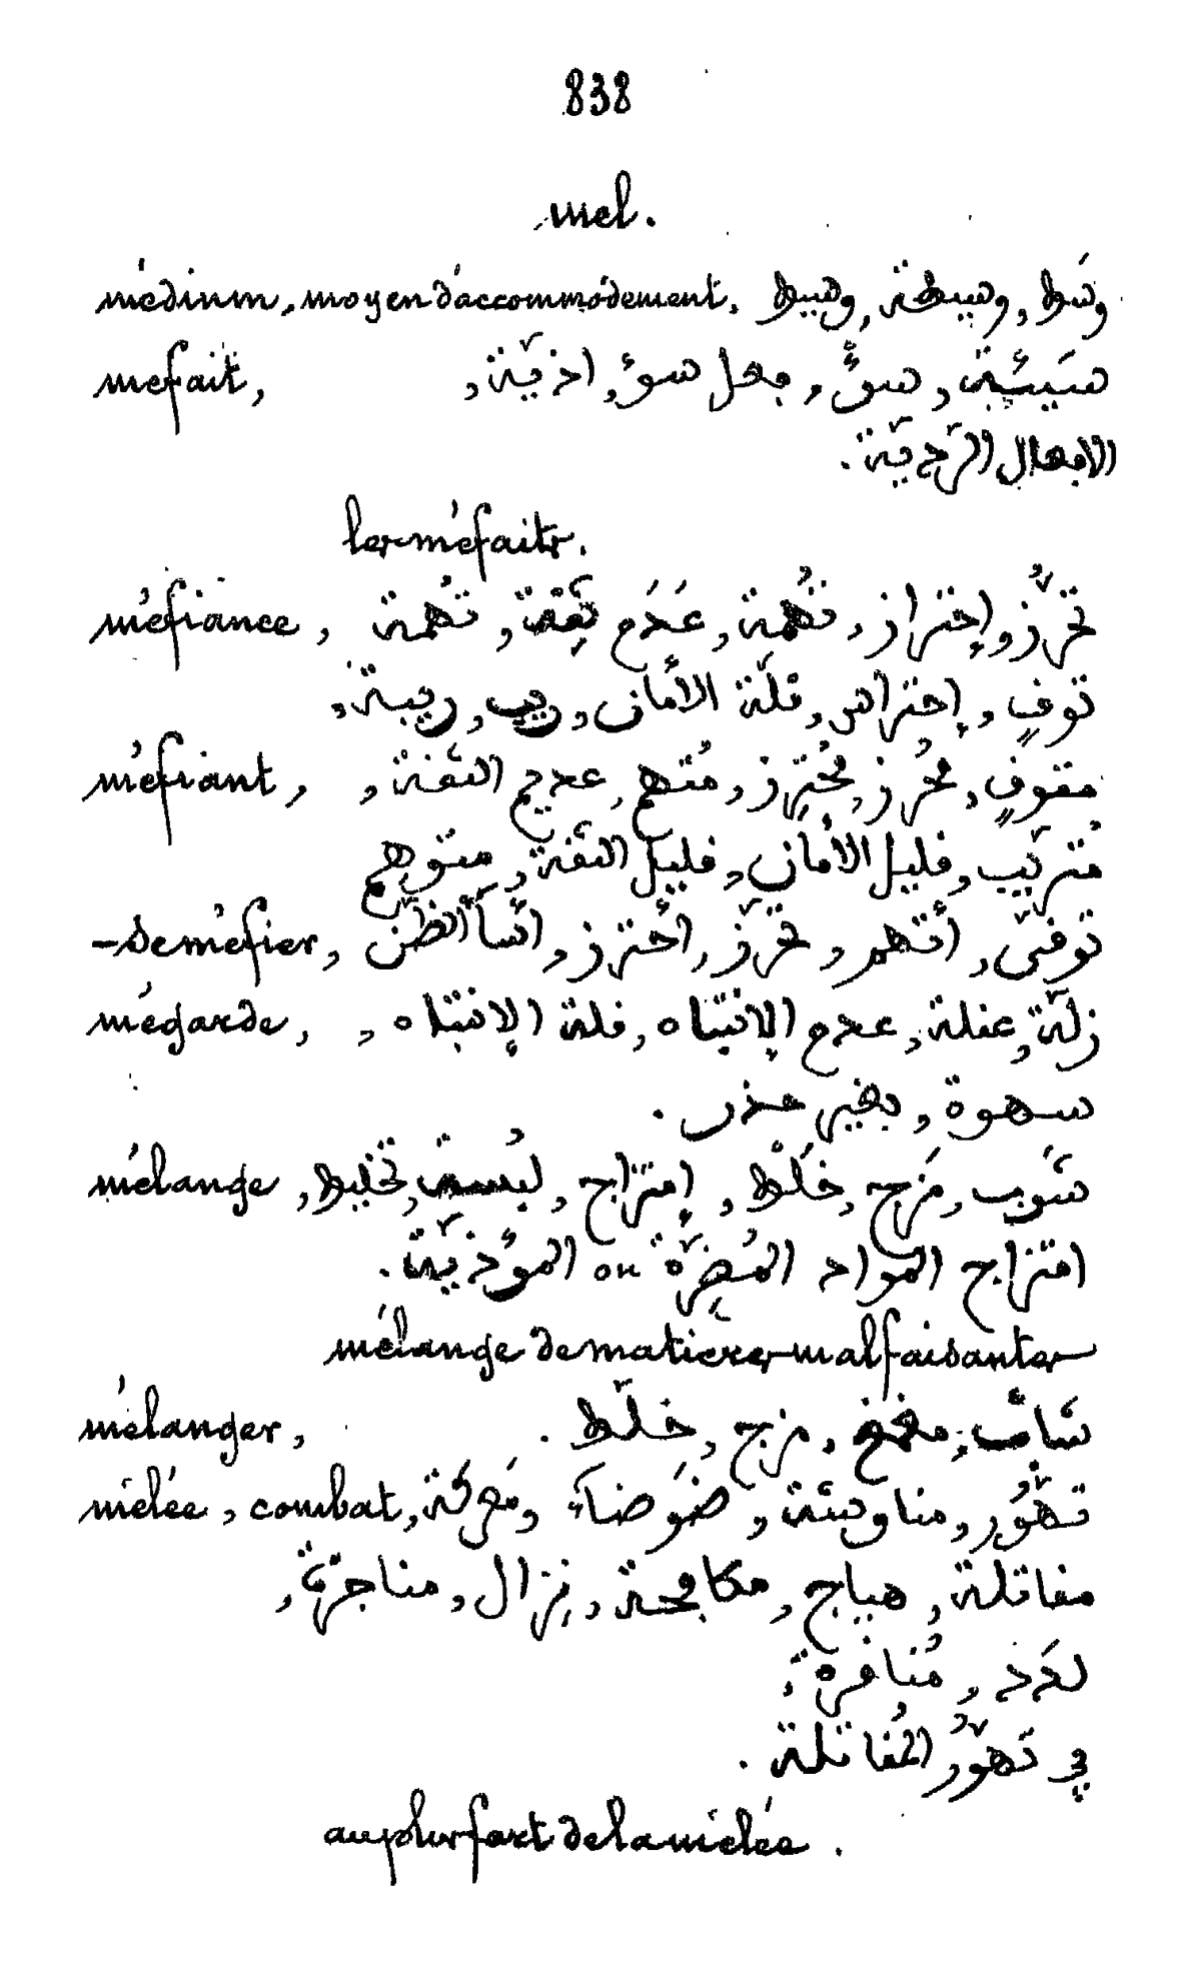 838
mel.
médium, moyen d'accommodement, وسَط, وسيطة, وسيط
mefait, سَيّئة, سوءٌ, فعل سوء, اذيّة,
الافعال الرّديّة.
les méfaits.
méfiance, تحرُّز, إحتراز, تُهمة, عَدَم ثِقة, تُهمة
توقٍ, إحتراس, قلّة الأمان, ريب, ريبة,
méfiant, متوقٍ, محرُز, مُحترِز, مُتهم, عديم الثقة,
مُتريّب, قليل الأمان, قليل الثقة, متوهم
– se méfier, توقّى, أتهم, تحرّز, أحترز, أسأ ألظنّ
mégarde, زلّة, غفلة, عدم الإنتباه, قلة الإنتباه,
سهوة, بغير حذر.
mélange, شَوب, مَزج, خَلْط, إمتزاج, لبُسة, تخليط,
امتزاج المواد المُضِرّة ou المؤذيّة.
mélange de matieres malfaisantes
mélanger, شابَ, مزج, خلّط.
mêlée, combat, تهوُّر, مناوشة, ضَوضاء, مَعركة,
مقاتلة, هياج, مكافحة, نِزال, مناجزة,
لدَد, مُنافرة,
في تهوُّر المُقاتلة.
au plus fort de la mêlée.